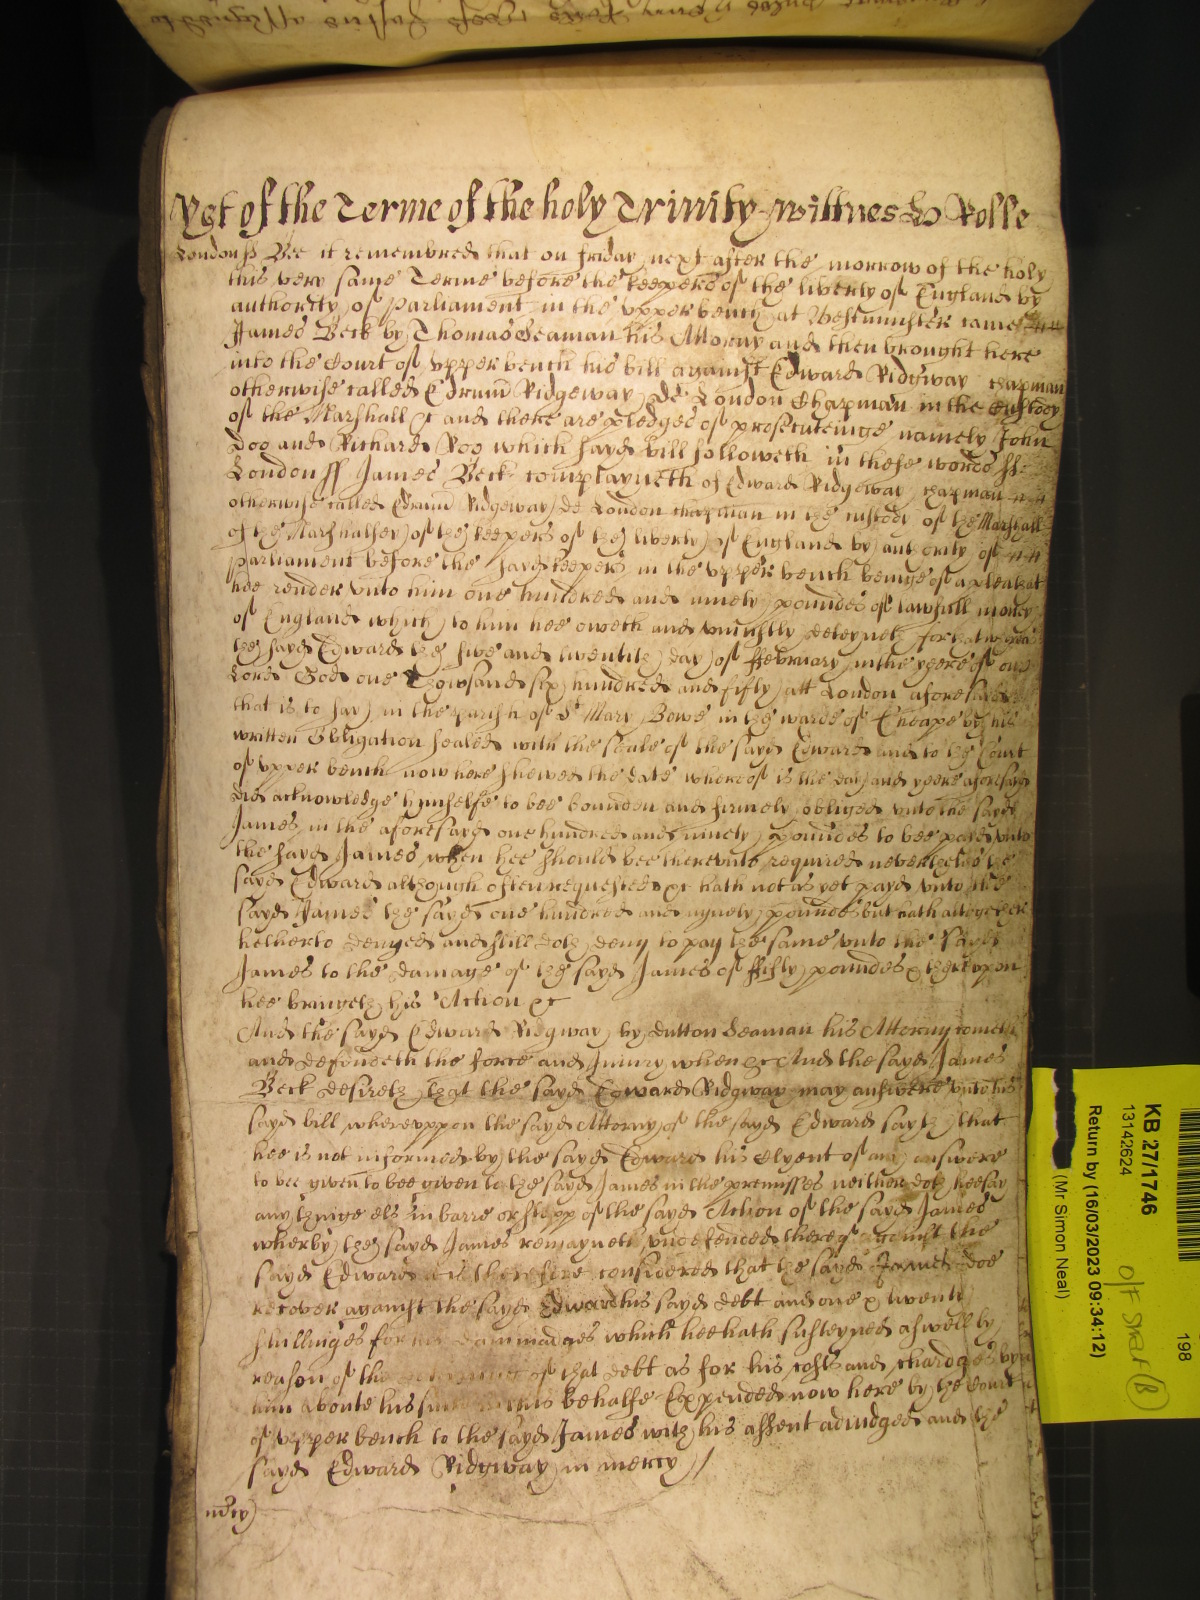 Yet of the Terme of the holy Trinity wittnes H Rolle
London ss Bee it remembred that on friday next after the morrow of the holy
this very same Terme before the keepers of the liberty of England by
authority of Parliament in the upper bench at Westminster came
James Beck by Thomas Seaman his Attorny and then brought here
into the Court of upper bench his bill against Edward Ridgway chapman
otherwise called Edward Ridgeway de London Chapman in the Custody
of the Marshall &c and there are pledges of prosecuteinge namely John
Doo and Richard Roo which sayd bill followeth in these words ss
London ss James Beck complayneth of Edward Ridgeway chapman
otherwise called Edward Ridgeway de London chapman in the custody of the Marshall
of the Marshalsey of the keepers of the liberty of England by authority of
Parliament before the sayd keepers in the upper bench beinge of a plea that
hee render unto him one hundred and ninety poundes of lawfull money
of England which to him hee oweth and uniustly deteyneth for that whereas
the sayd Edward the five and twentith day of ffebruary in the yeere of our
Lord God one Thowsand six hundred and fifty att London aforesayd
that is to say in the parish of St Mary Bowe in the warde of Cheape by his
written Obligation sealed with the seale of the sayd Edward and to the Court
of upper bench now here shewed the date whereof is the day and yeere aforesayd
did acknowledge himselfe to bee bounden and firmely obliged unto the sayd
James in the aforesayd one hundred and ninety poundes to bee payd unto
the sayd James when hee should bee thereunto required neverthelesse the
sayd Edward although often requested &c hath not as yet payd unto the
sayd James the sayd one hundred and nynety poundes but hath altogether
hetherto denyed and still doth deny to pay the same unto the sayd
James to the damage of the sayd James of ffifty poundes & thereupon
hee bringeth his Action &c
And the sayd Edward Ridgway by Dutton Seaman his Attorny cometh
and defendeth the force and Iniury when &c And the sayd James
Beck desireth that the sayd Edward Ridgway may answere unto his
sayd bill whereuppon the sayd Attorny of the sayd Edward sayth that
hee is not informed by the sayd Edward his Clyent of any answere
to bee given to bee given to the sayd James in the premisses neither doth hee say
any thinge els in barre or stopp of the sayd Action of the sayd James
wherby the sayd James remayneth undefenced thereof against the
sayd Edward it is therefore considered that the sayd James doe
recover against the sayd Edward his sayd debt and one & twenty
shillinges for his dammadges which hee hath susteyned aswell by
reason of the of that debt as for his costs and chardges by
him aboute his suite in this behalfe Expended now here by the Court
of upper bench to the sayd James with his assent adiudged and the
sayd Edward Ridgway in mercy
mercy
KB 27/1746
13142624
Return by (16/03/2023 09:34:12)
(Mr Simon Neal)
198